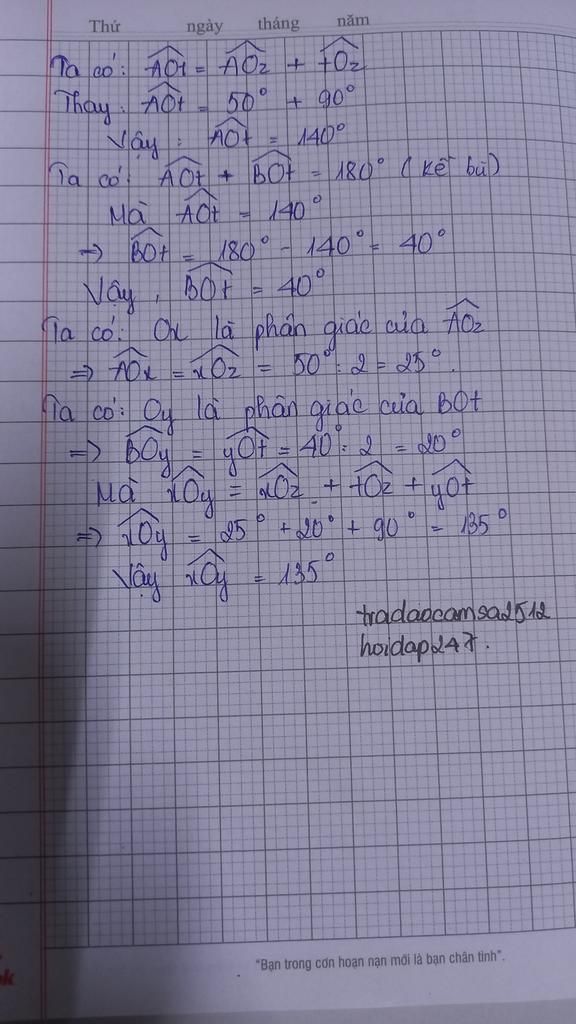 Thứ ngày tháng năm
Ta có: AOt = AOz + tOz
Thay: AOt = 50° + 90°
Vậy: AOt = 140°
Ta có: AOt + BOt = 180° (kề bù)
Mà AOt = 140°
=> BOt = 180° - 140° = 40°
Vậy, BOt = 40°
Ta có: Ox là phân giác của AOz
=> AOx = xOz = 50° : 2 = 25°.
Ta có: Oy là phân giác của BOt
=> BOy = yOt = 40° : 2 = 20°
Mà xOy = xOz + tOz + yOt
=> xOy = 25° + 20° + 90° = 135°
Vậy xOy = 135°
tradaocamsa2512
hoidap247.
"Bạn trong cơn hoạn nạn mới là bạn chân tình".